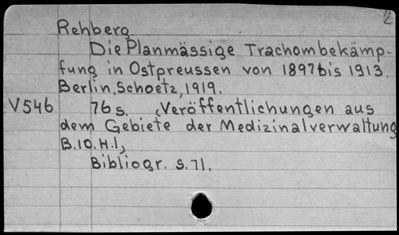 Rehberg.
Die Planmässige Trachombekämp-
fung in Ostpreussen von 1897 bis 1913.
Berlin, Schoetz, 1919.
V546 76 s. (Veröffentlichungen aus
dem Gebiete der Medizinalverwaltung
B.10.H.1)
Bibliogr. s.71.